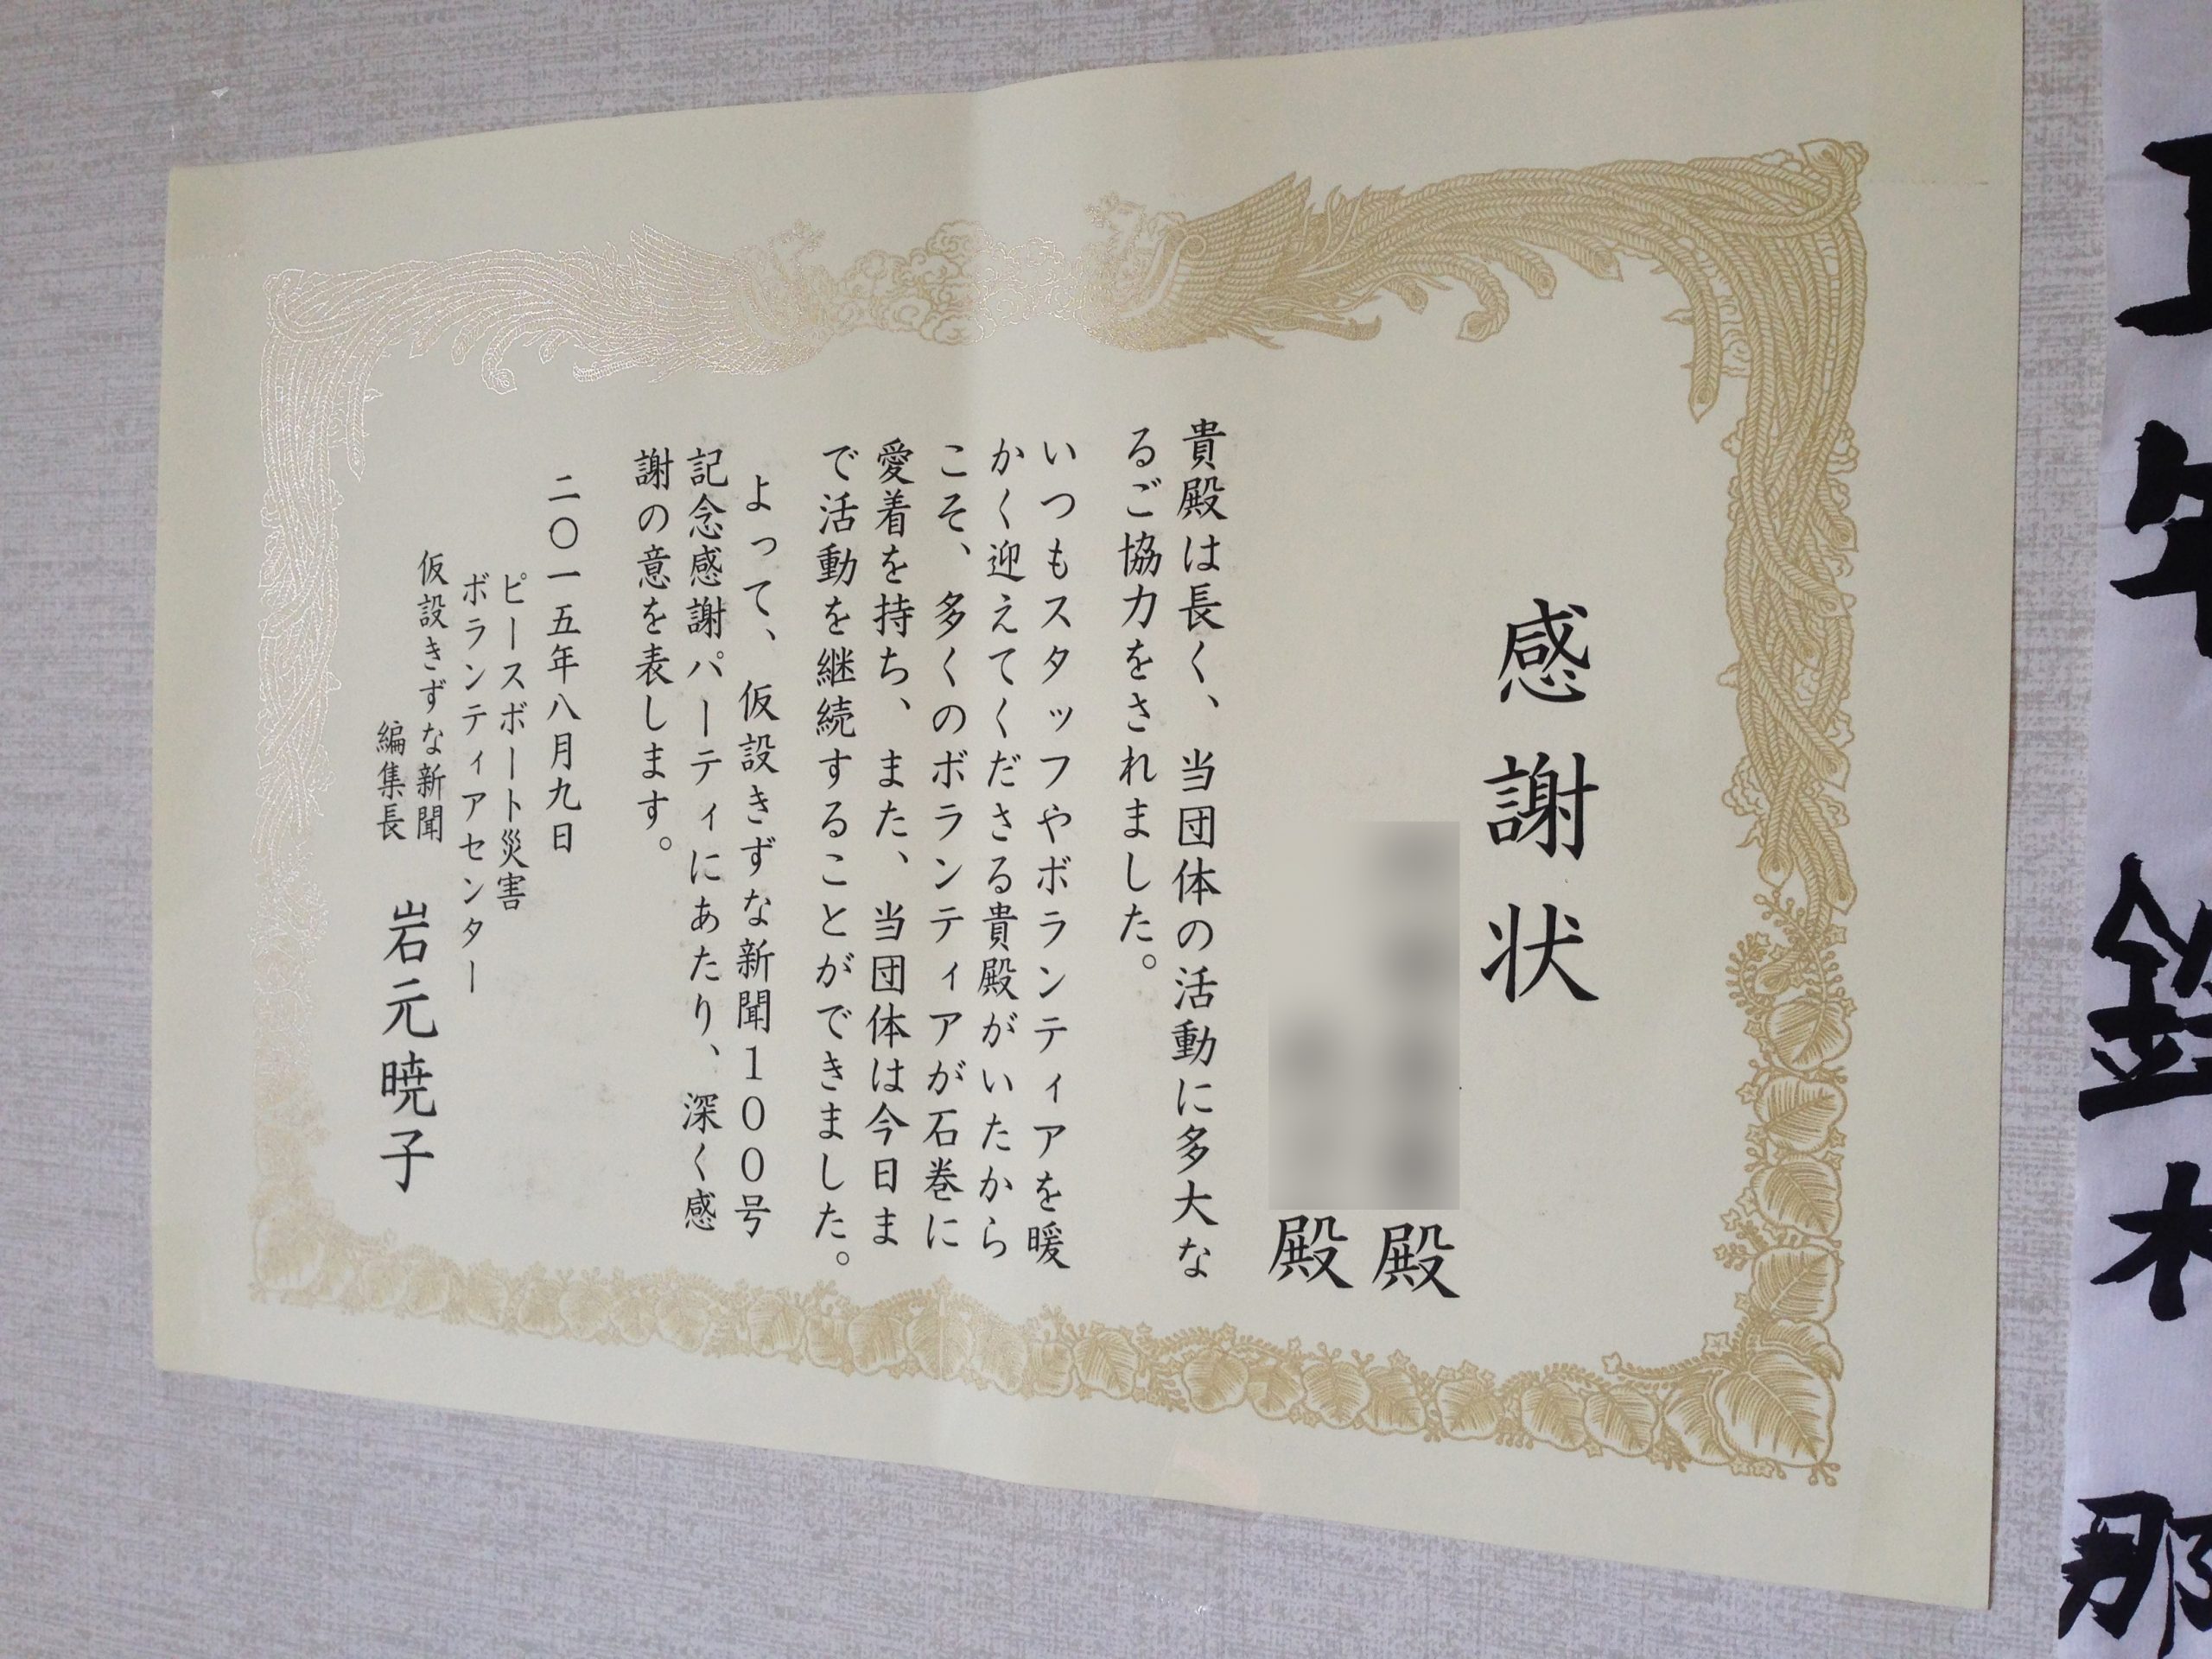 感謝状
殿
殿
貴殿は長く、当団体の活動に多大な
るご協力をされました。
いつもスタッフやボランティアを暖
かく迎えてくださる貴殿がいたから
こそ、多くのボランティアが石巻に
愛着を持ち、また、当団体は今日ま
で活動を継続することができました。
よって、仮設きずな新聞100号
記念感謝パーティにあたり、深く感
謝の意を表します。
二〇一五年八月九日
ピースボート災害
ボランティアセンター
仮設きずな新聞
編集長 岩元暁子